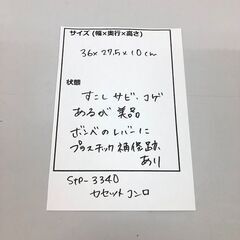 サイズ (幅×奥行×高さ)
36×27.5×10cm
状態
すこしサビ、コゲ
あるが美品
ボンベのレバーに
プラスチック補修跡
あり
StP-3340
カセットコンロ